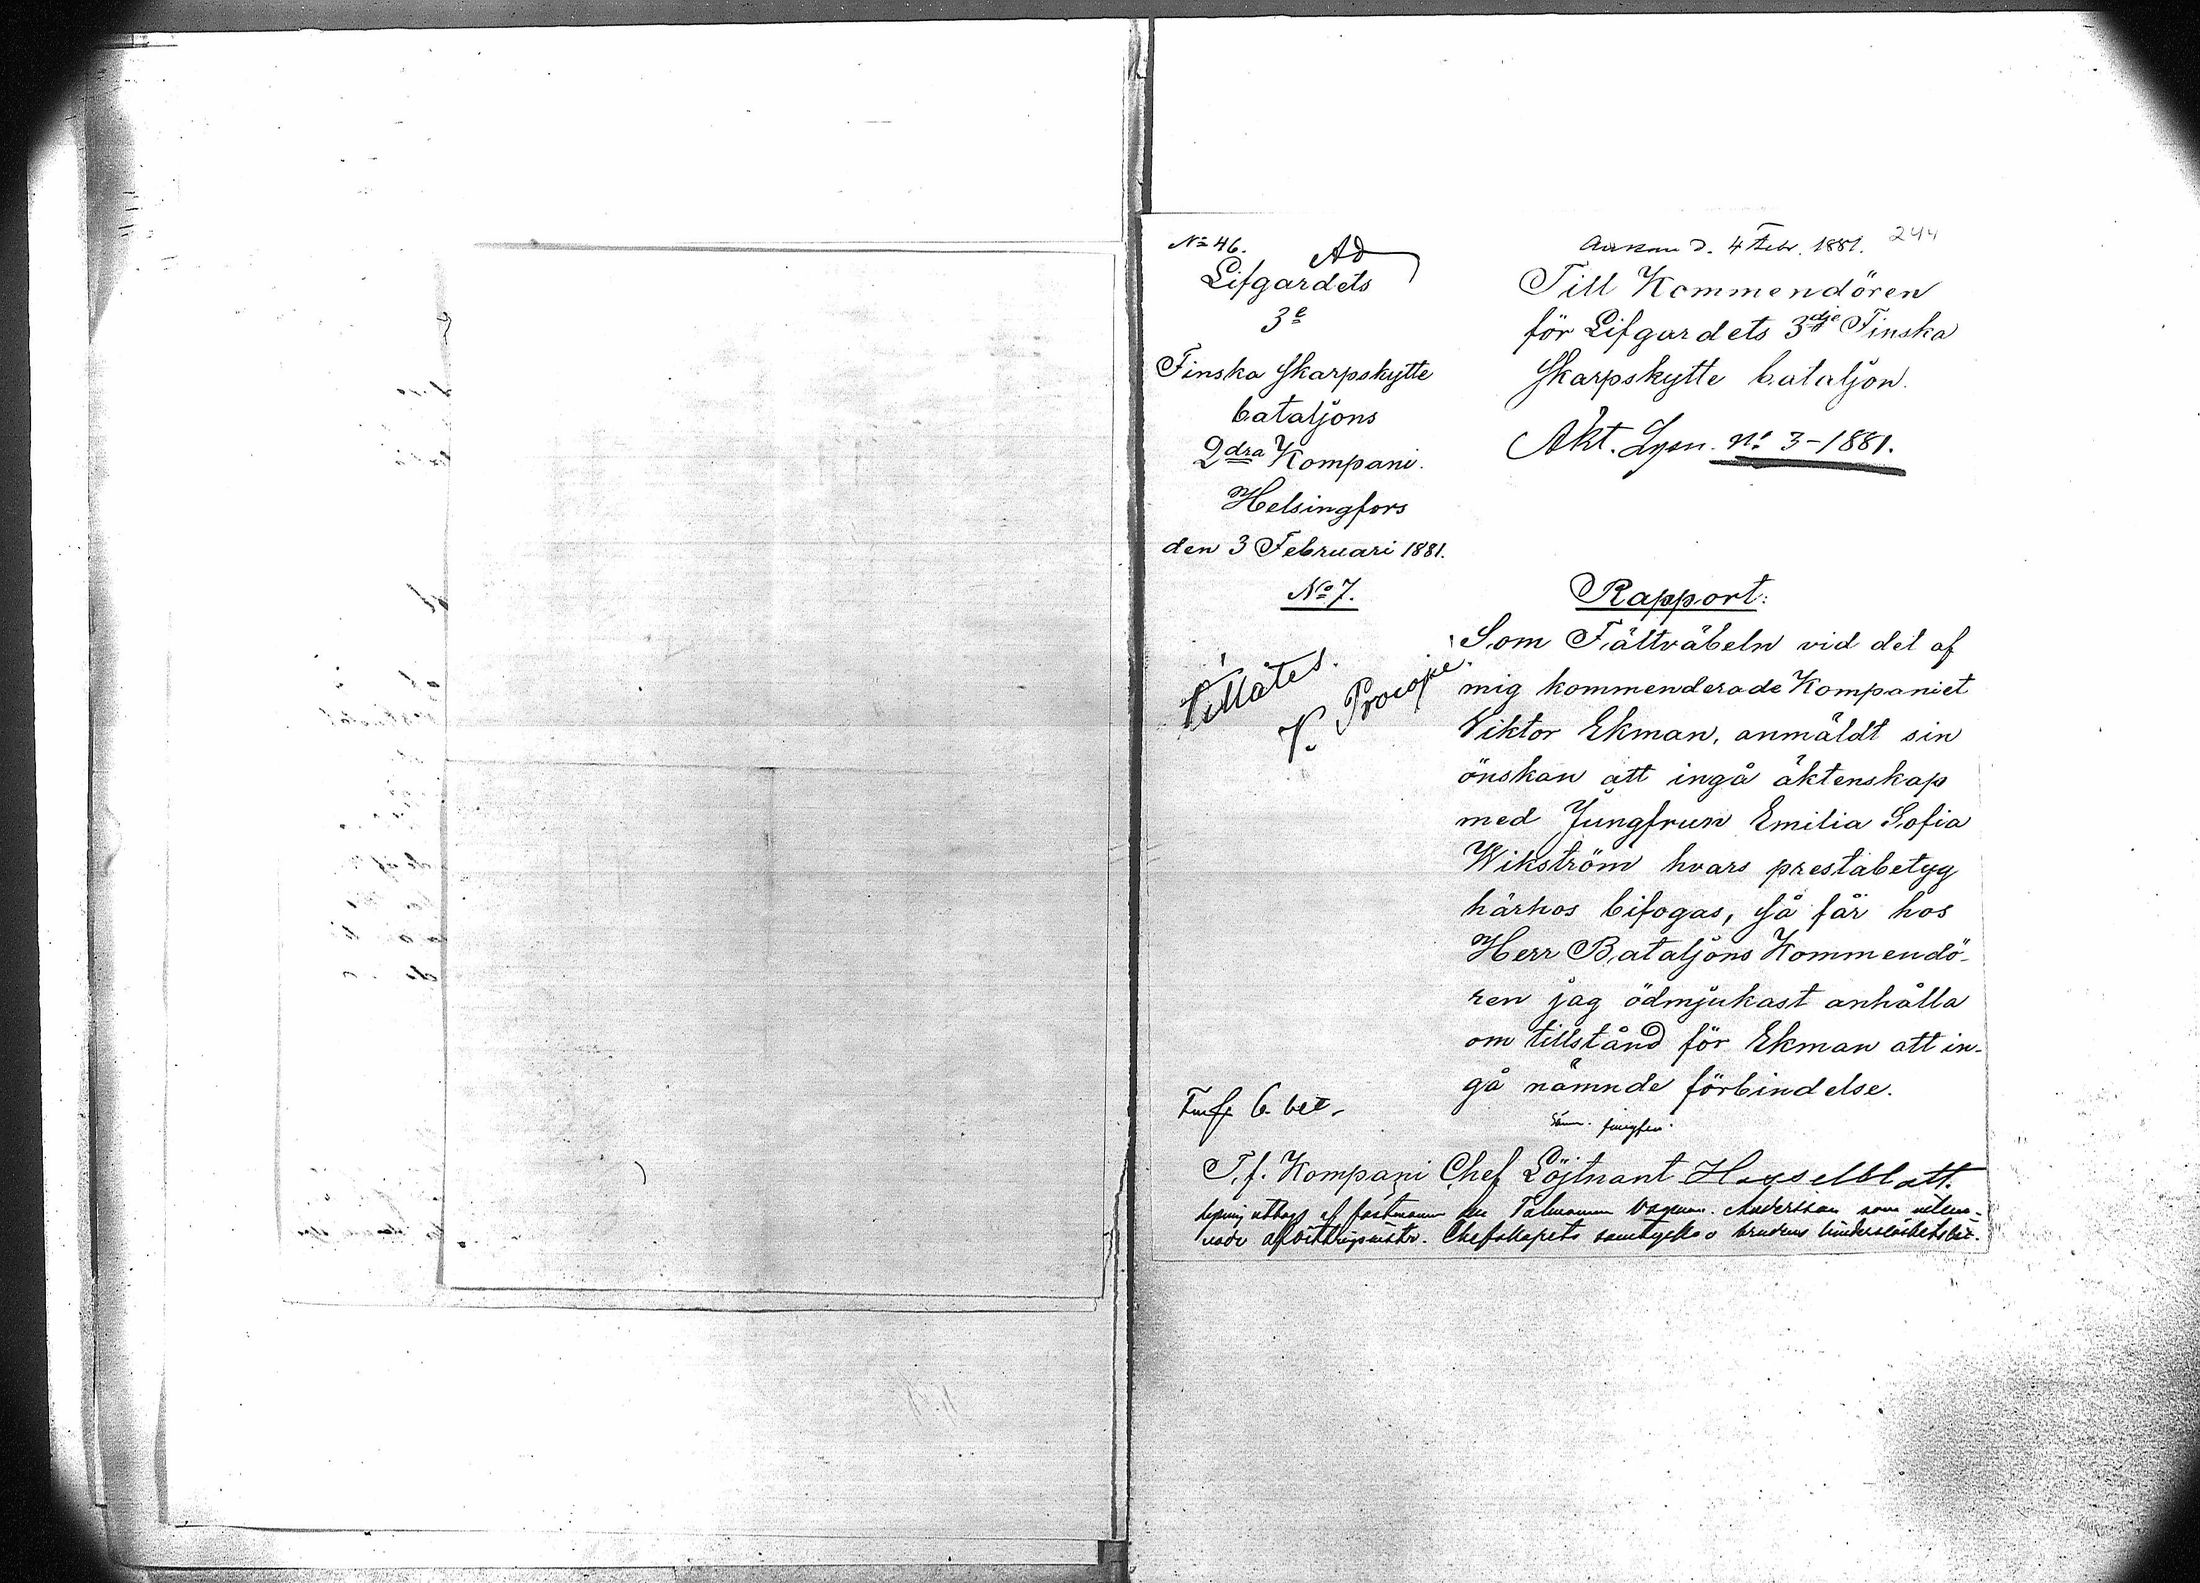 No 46.
Ad
Lifgardets
3e
Finska Skarpskytte
bataljons
2dra Kompani.
Helsingfors
den 3 Februari 1881.
No 7.
Tillåtes.
V. Procopé.
d. 4 Febr. 1881.
244
Till Kommendören
för Lifgardets 3dje Finska
Skarpskytte bataljon.
Akt. Lysn. No 3-1881.
Rapport:
Som Fältväbeln vid det af
mig kommenderade Kompaniet
Viktor Ekman, anmäldt sin
önskan att ingå äktenskap
med Jungfrun Emilia Sofia
Wikström hvars prestabetyg
härhos bifogas, så får hos
Herr Bataljons Kommendö-
ren jag ödmjukast anhålla
om tillstånd för Ekman att in-
gå nämnde förbindelse.
jungfru.
T.f. Kompani Chef Löjtnant Hasselblatt.
lysning uttags af fästmannen Andersson som
Chefskapets samtycke o brudens hinderslöshetsbet.